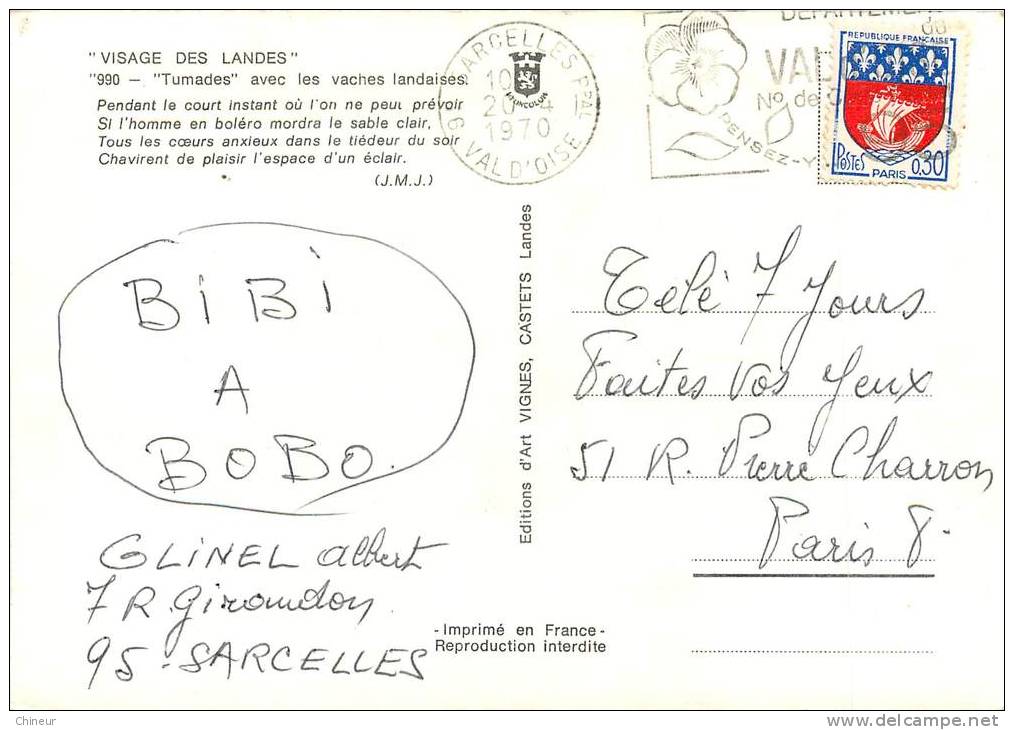 "VISAGE DES LANDES"
"990 — "Tumades" avec les vaches landaises.
Pendant le court instant où l'on ne peut prévoir
Si l'homme en boléro mordra le sable clair,
Tous les cœurs anxieux dans le tiédeur du soir
Chavirent de plaisir l'espace d'un éclair.
(J.M.J.)
SARCELLES PPAL
10
20-4
1970
VAL D'OISE
DÉPARTEMENT
du
VAL
No de
PENSEZ-Y
REPUBLIQUE FRANÇAISE
POSTES
0,30
PARIS
BiBi
A
BOBO.
GLINEL Albert
7 R. Giraudon
95 - SARCELLES
Editions d'Art VIGNES, CASTETS Landes
Télé 7 Jours
Faites Vos Jeux
51 R. Pierre Charron
Paris 8.
-Imprimé en France-
Reproduction interdite
Chineur
delcampe.net